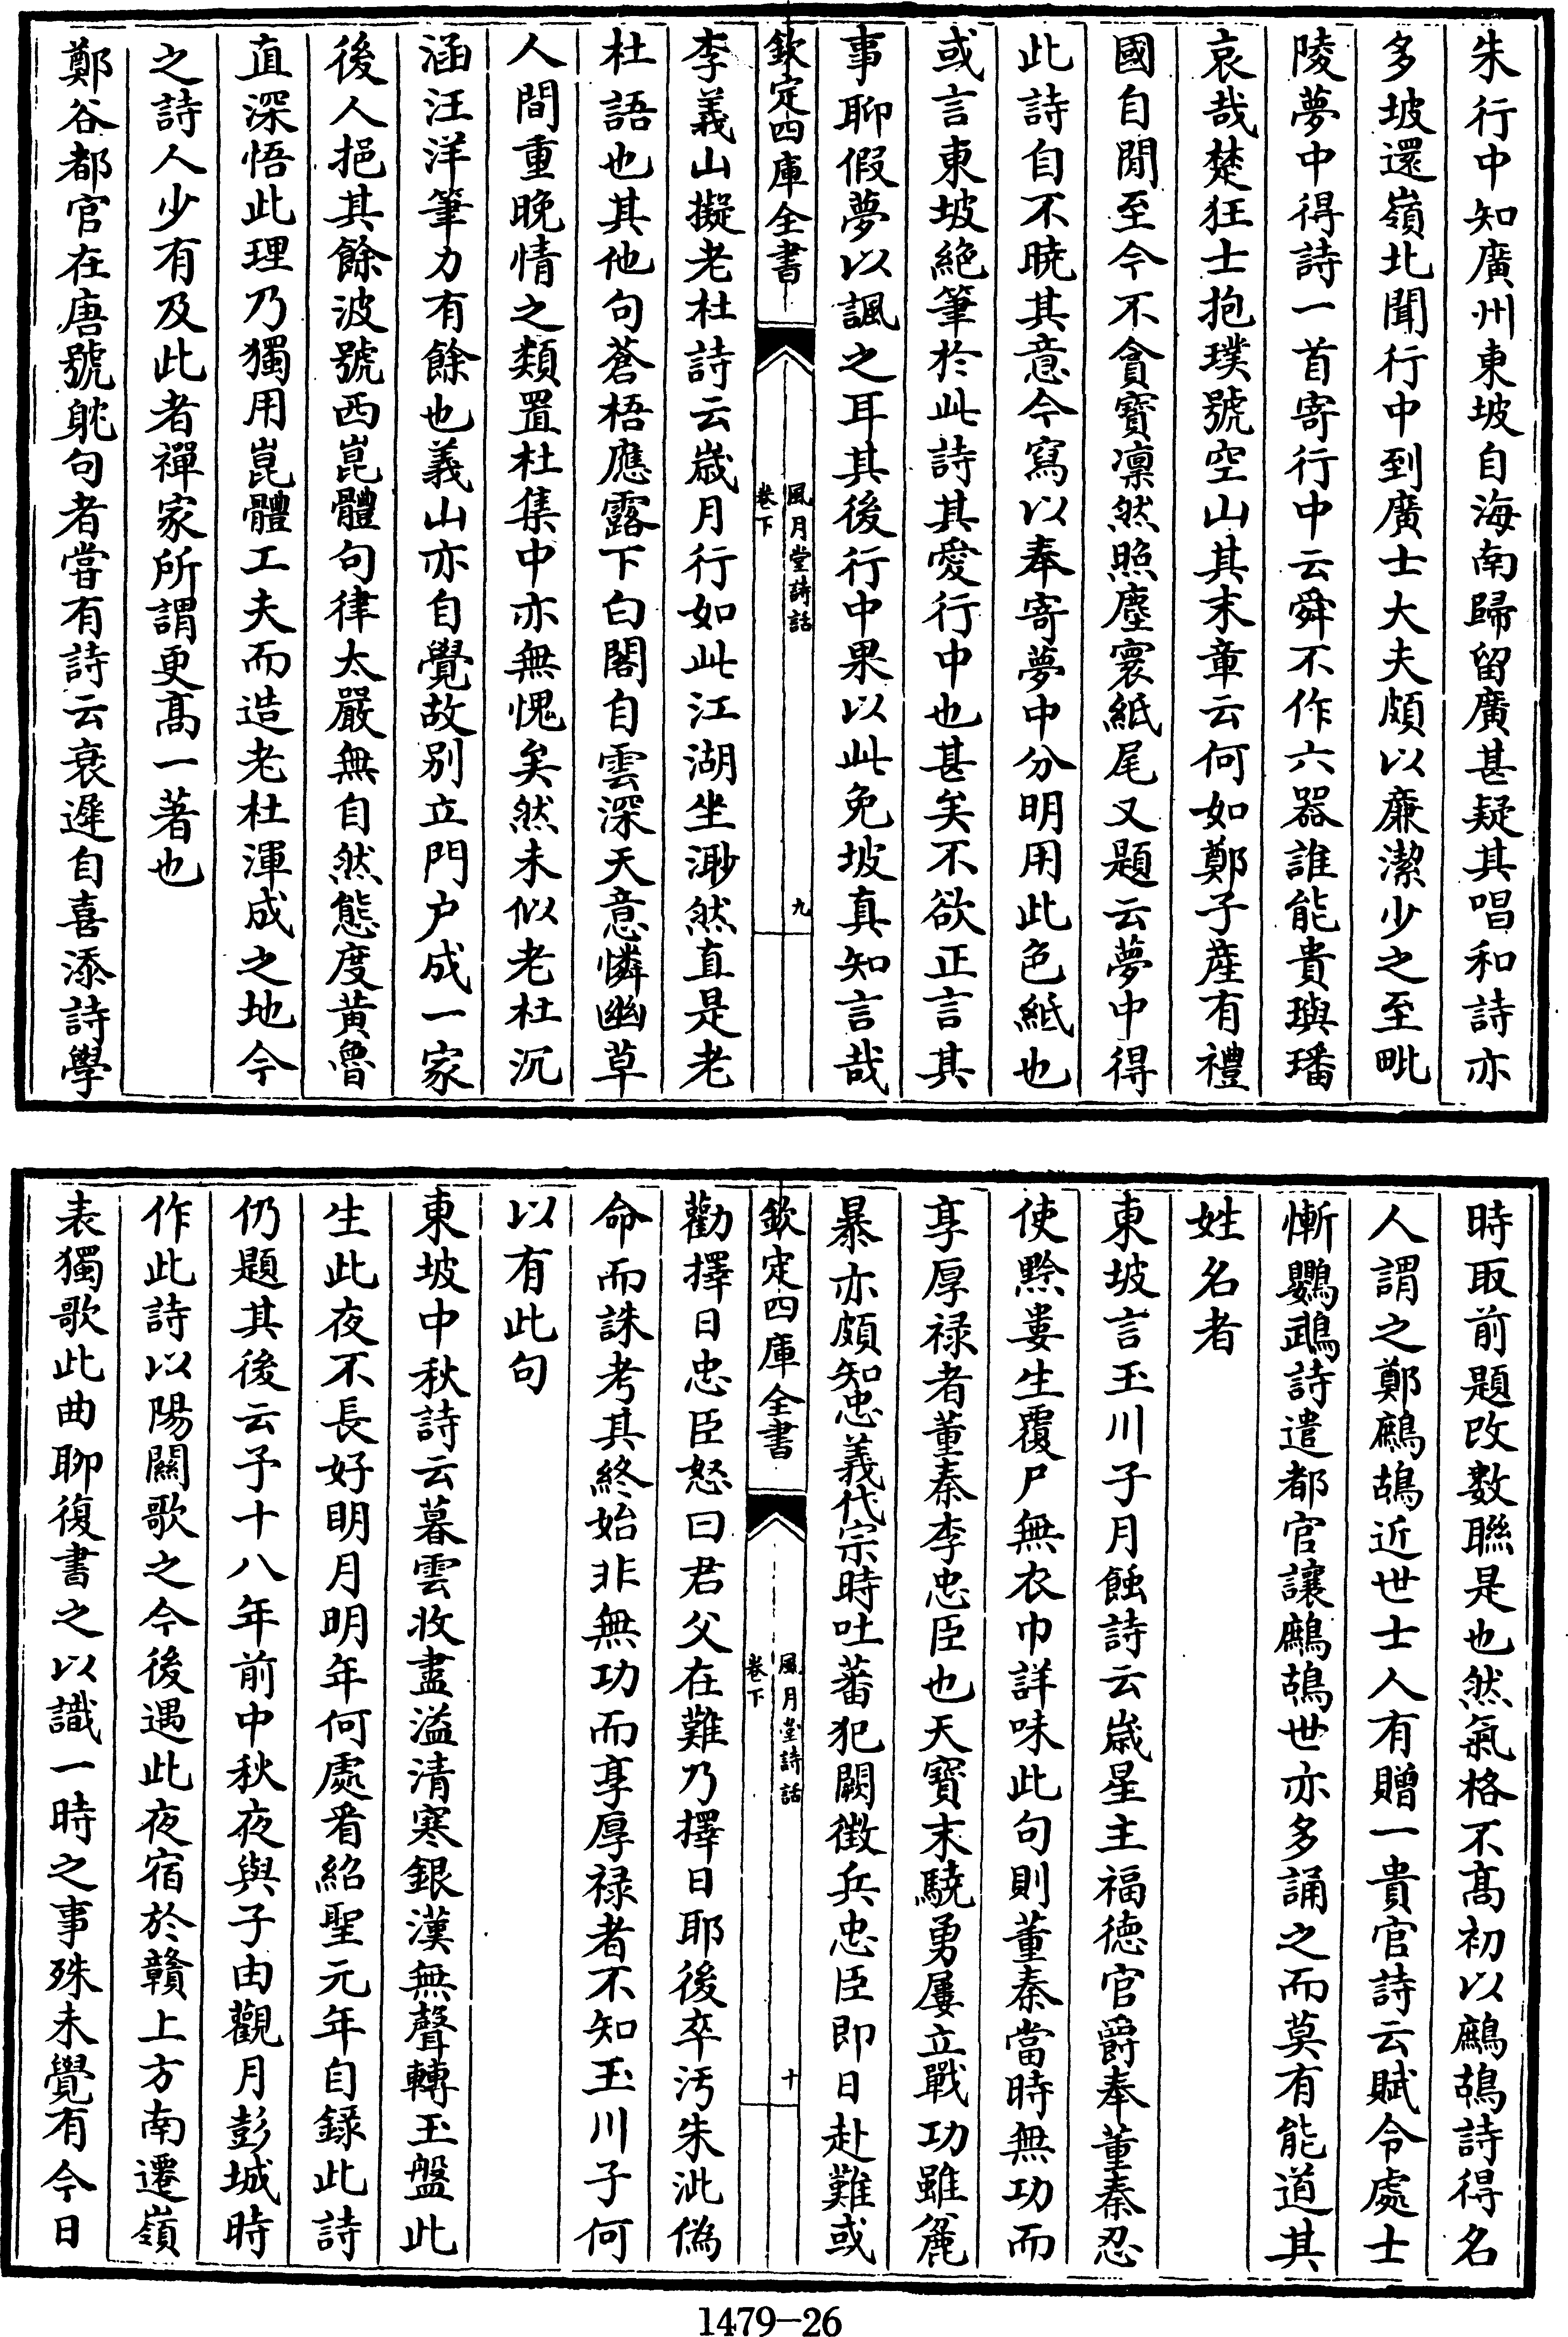 朱行中知廣州東坡自海南歸留廣甚疑其唱和詩亦
多坡還嶺北聞行中到廣士大夫頗以廉潔少之至毗
陵夢中得詩一首寄行中云舜不作六器誰能貴璵璠
哀哉楚狂士抱璞號空山其末章云何如鄭子産有禮
國自閒至今不貪寶凛然照塵寰紙尾又題云夢中得
此詩自不曉其意今寫以奉寄夢中分明用此色紙也
或言東坡絶筆於此詩其愛行中也甚矣不欲正言其
事聊假夢以諷之耳其後行中果以此免坡真知言哉
欽定四庫全書
風月堂詩話
卷下
九
李義山擬老杜詩云歲月行如此江湖坐渺然直是老
杜語也其他句蒼梧應露下白閣自雲深天意憐幽草
人間重晚情之類置杜集中亦無愧矣然未似老杜沉
涵汪洋筆力有餘也義山亦自覺故别立門户成一家
後人挹其餘波號西崑體句律太嚴無自然態度黄魯
直深悟此理乃獨用崑體工夫而造老杜渾成之地今
之詩人少有及此者禪家所謂更髙一著也
鄭谷都官在唐號躭句者嘗有詩云衰遲自喜添詩學
時取前題改數聯是也然氣格不髙初以鷓鴣詩得名
人謂之鄭鷓鴣近世士人有贈一貴官詩云賦令處士
慚鸚鵡詩遣都官讓鷓鴣世亦多誦之而莫有能道其
姓名者
東坡言玉川子月蝕詩云歲星主福徳官爵奉董秦忍
使黔婁生覆尸無衣巾詳味此句則董秦當時無功而
享厚禄者董秦李忠臣也天寶末驍勇屢立戰功雖麄
暴亦頗知忠義代宗時吐蕃犯闕徴兵忠臣即日赴難或
欽定四庫全書
風月堂詩話
卷下
十
勸擇日忠臣怒曰君父在難乃擇日耶後卒汚朱泚偽
命而誅考其終始非無功而享厚禄者不知玉川子何
以有此句
東坡中秋詩云暮雲收盡溢清寒銀漢無聲轉玉盤此
生此夜不長好明月明年何處看紹聖元年自録此詩
仍題其後云予十八年前中秋夜與子由觀月彭城時
作此詩以陽關歌之今後遇此夜宿於贛上方南遷嶺
表獨歌此曲聊復書之以識一時之事殊未覺有今日
1479-26